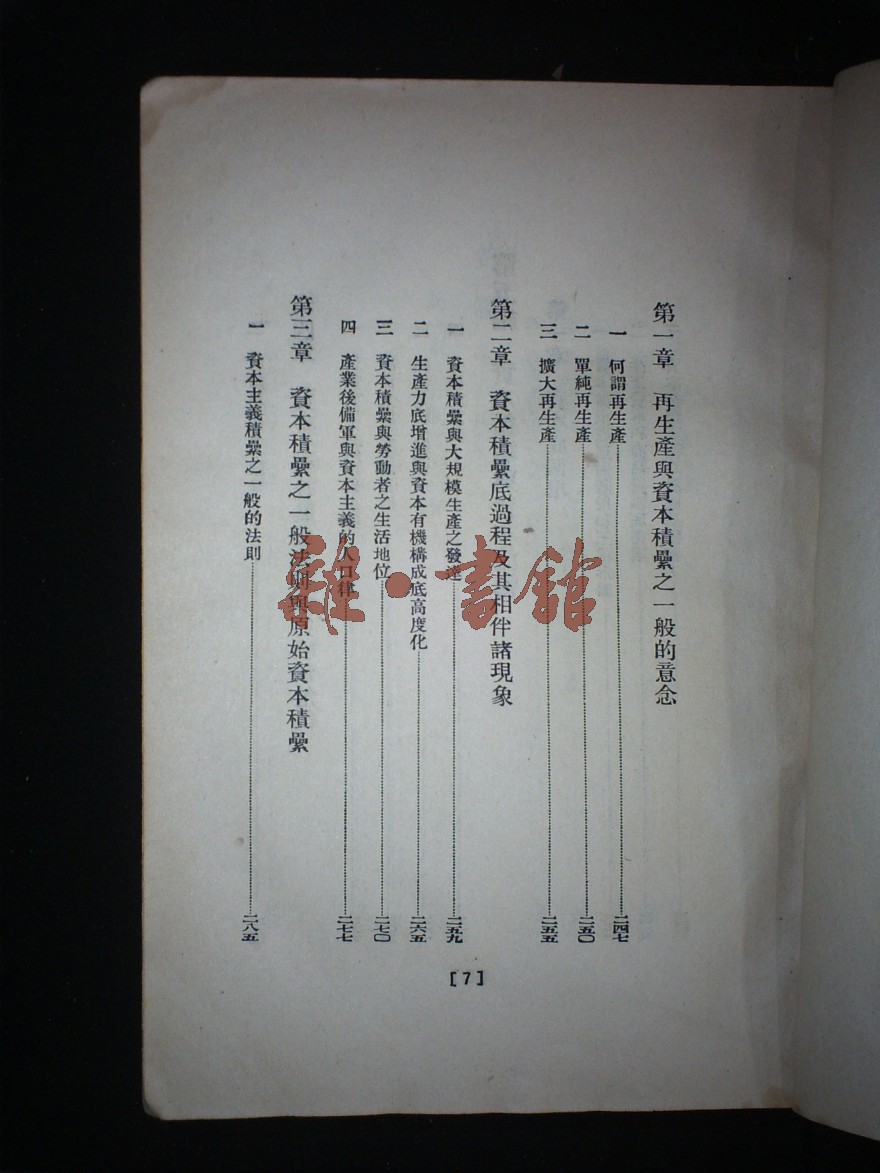 第一章　再生產與資本積纍之一般的意念
一　何謂再生產……二四七
二　單純再生產……二五〇
三　擴大再生產……二五五
第二章　資本積纍底過程及其相伴諸現象
一　資本積纍與大規模生產之發達……二五九
二　生產力底增進與資本有機構成底高度化……二六五
三　資本積纍與勞動者之生活地位……二七〇
四　產業後備軍與資本主義的人口律……二七七
第三章　資本積纍之一般法則與原始資本積纍
一　資本主義積纍之一般的法則……二八五
[7]
雜·書館